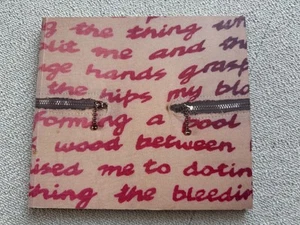 the thing
me and th
hands grasp
the hips my blo
forming a pool
wood between
ised me to dotin
hing the bleedin